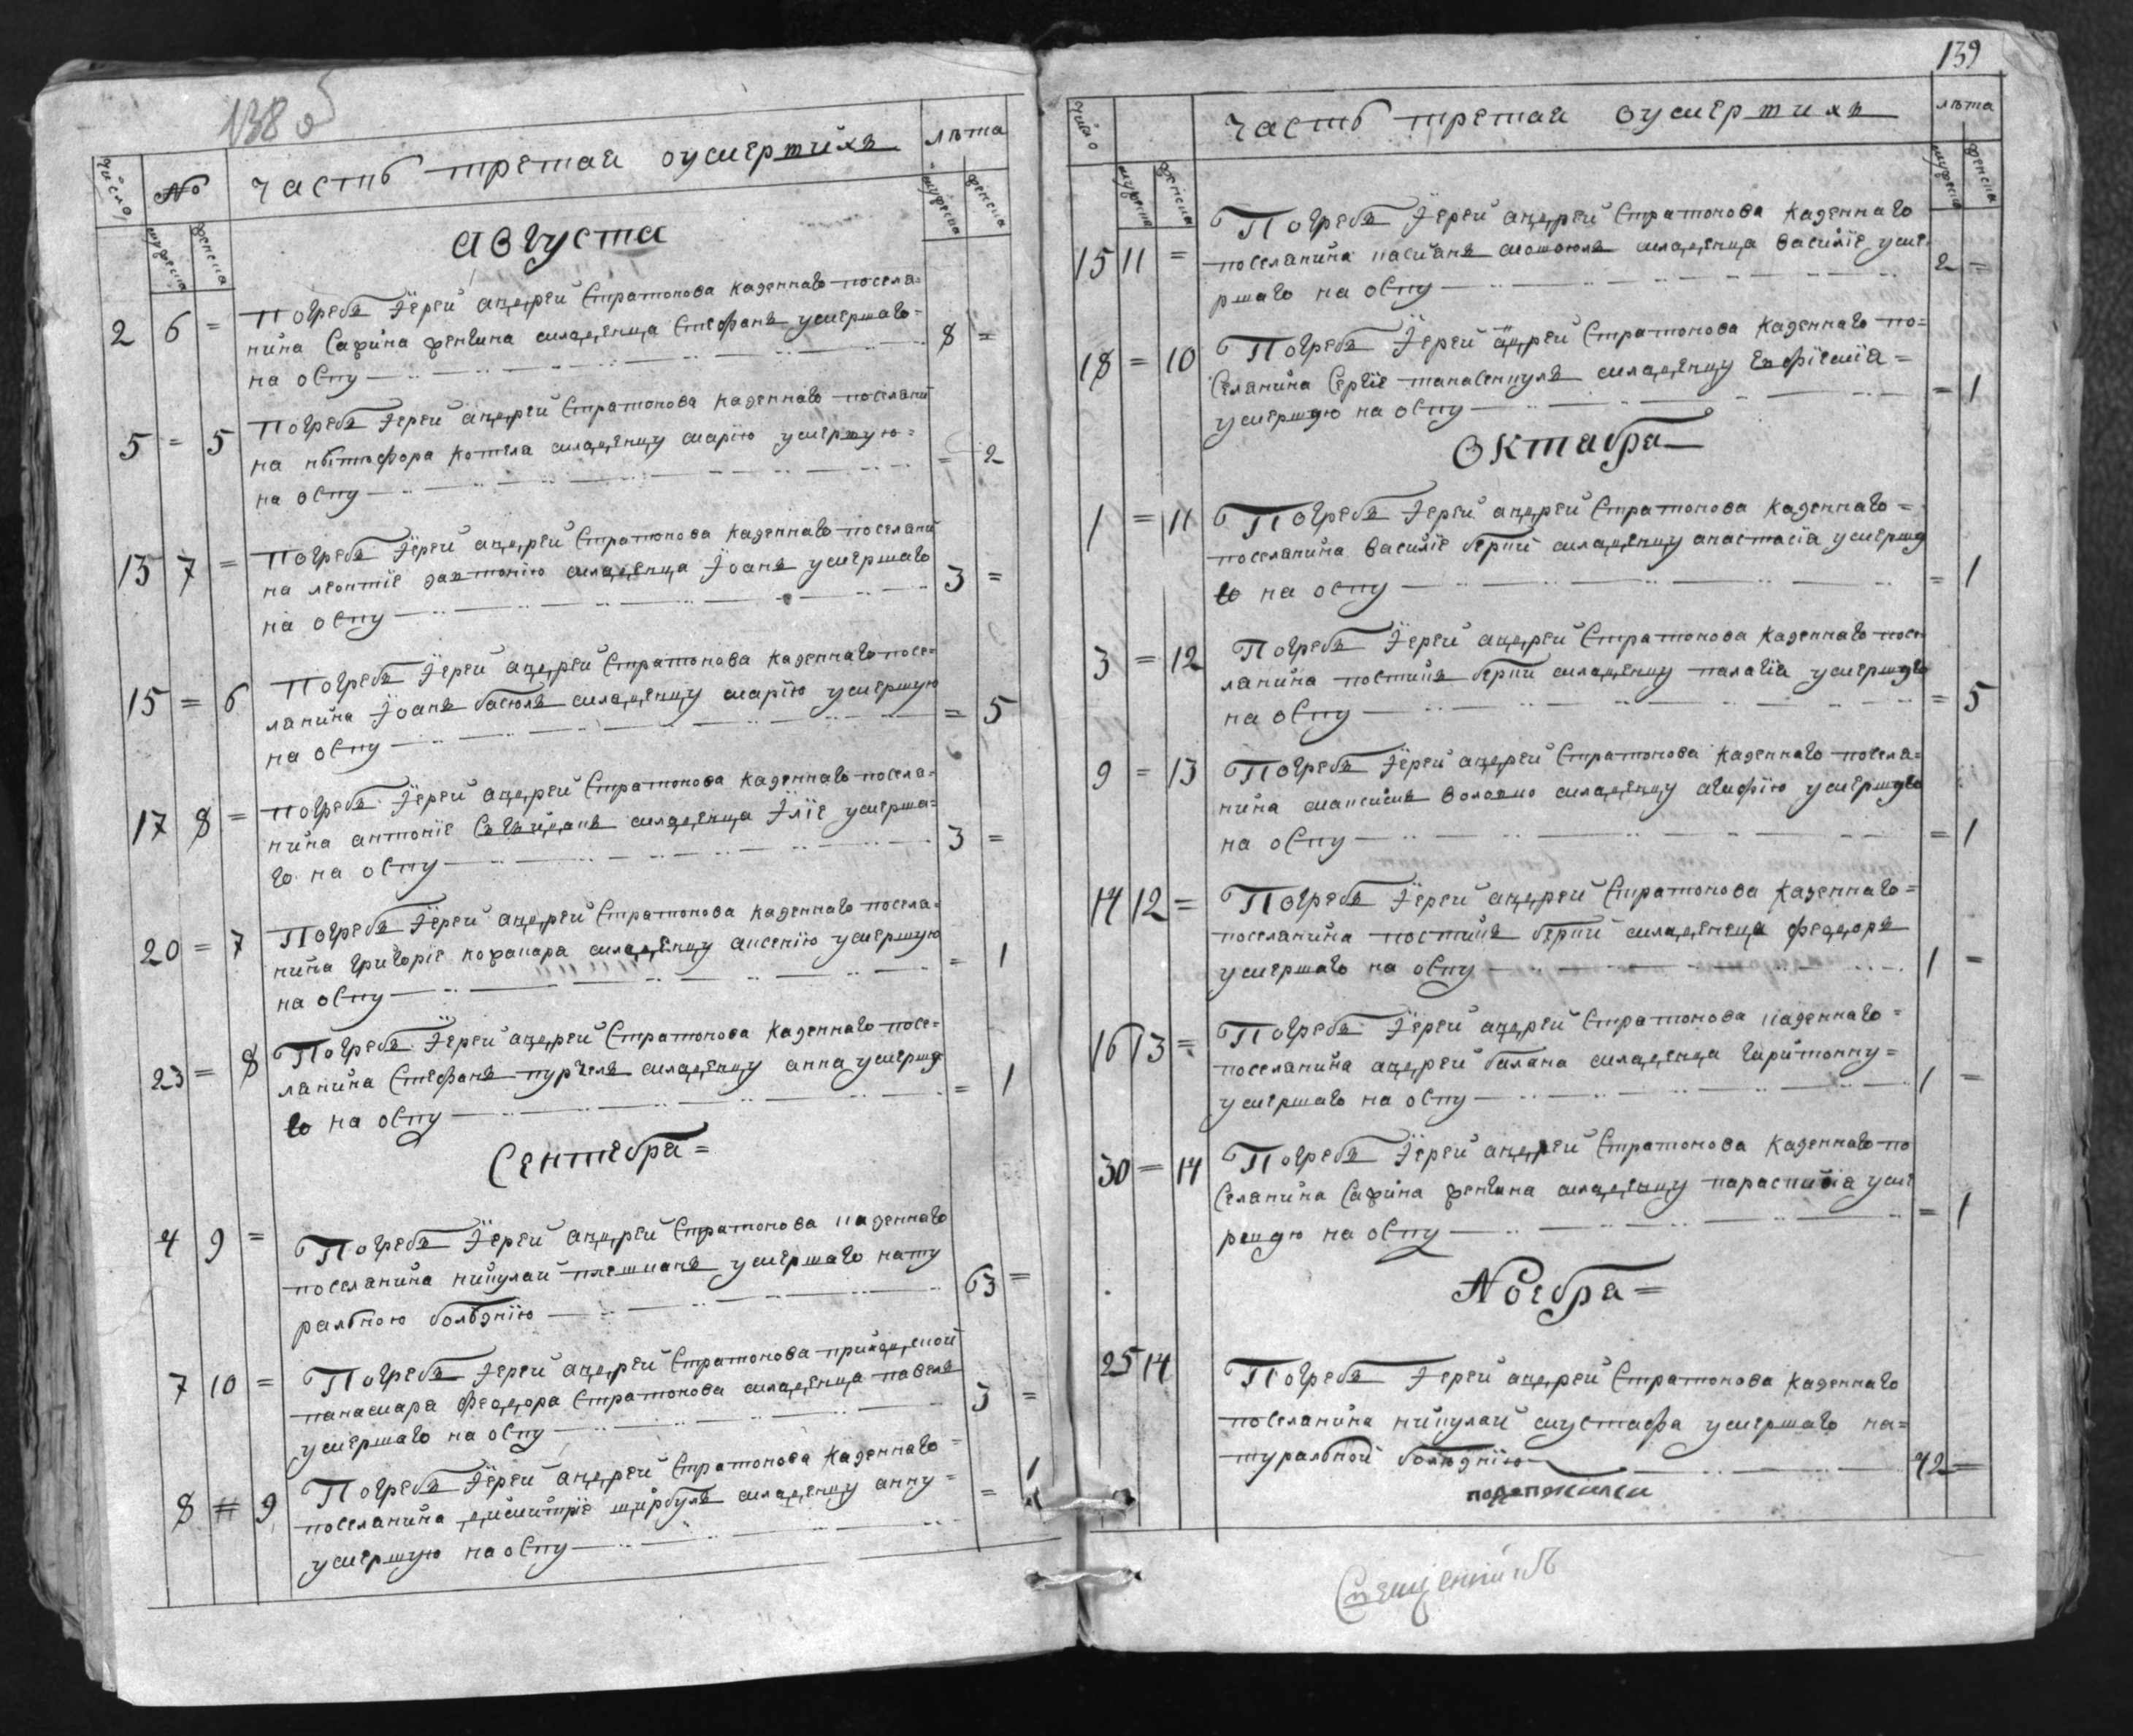 138 об
число
№
часть третая оумертихъ
лѣта
мужеска
женска
мужеска
женска
Августа
2 6 = Погребъ Іерей андрей Стратонова казеннаго посела=
нина Сафина женгина младенца Стефанъ умершаго=
на оспу 8 =
5 = 5 Погребъ Іерей андрей Стратонова казеннаго поселани
на никифора котела младенцу марію умершую=
на оспу = 2
13 7 = Погребъ Іерей андрей Стратонова казеннаго поселани
на леонтіе младенца Іоанъ умершаго
на оспу 3 =
15 = 6 Погребъ Іерей андрей Стратонова казеннаго посе=
ланина Іоанъ басюлъ младенцу марію умершую
на оспу = 5
17 8 = Погребъ Іерей андрей Стратонова казеннаго посела=
нина антоніе младенца Іліе умерша=
го на оспу 3 =
20 = 7 Погребъ Іерей андрей Стратонова казеннаго посела=
нина григоріе кожакара младенцу аксенію умершую
на оспу = 1
23 = 8 Погребъ Іерей андрей Стратонова казеннаго посе=
ланина Стефанъ пуржелъ младенцу анна умершу
ю на оспу = 1
Сентебра=
4 9 = Погребъ Іерей андрей Стратонова казеннаго
поселанина никулай плешканъ умершаго нату
ралною болѣзнію 63 =
7 10 = Погребъ Іерей андрей Стратонова приходской
панамара феодора Стратонова младенца павелъ
умершаго на оспу 3 =
8 = 9 Погребъ Іерей андрей Стратонова казеннаго=
поселанина димитріе щирбулъ младенцу анну=
умершую на оспу = 1
139
число
часть третая оумертихъ
лѣта
мужеска
женска
мужеска
женска
15 11 = Погребъ Іерей андрей Стратонова казеннаго
поселанина касианъ младенца василіе уме
ршаго на оспу 2 =
18 = 10 Погребъ Іерей андрей Стратонова казеннаго по=
селанина Сергіе танасенкулъ младенцу Ефіеміа=
умершую на оспу = 1
Октабра
1 = 11 Погребъ Іерей андрей Стратонова казеннаго=
поселанина василіе берии младенцу анастасіа умершу
ю на оспу = 1
3 = 12 Погребъ Іерей андрей Стратонова казеннаго посе
ланина костинъ берии младенцу палагіа умершую
на оспу = 5
9 = 13 Погребъ Іерей андрей Стратонова казеннаго посела=
нина максимъ младенцу агафію умершую
на оспу = 1
14 12 = Погребъ Іерей андрей Стратонова казеннаго=
поселанина костинъ берии младенца феодоръ
умершаго на оспу 1 =
16 13 = Погребъ Іерей андрей Стратонова казеннаго=
поселанина андрей балана младенца
умершаго на оспу 1 =
30 = 14 Погребъ Іерей андрей Стратонова казеннаго по
селанина Сафина женгина младенцу параскивіа уме
ршую на оспу = 1
Ноебра=
25 14 Погребъ Іерей андрей Стратонова казеннаго
поселанина никулай мустафа умершаго на=
туралной болѣзнію 42 =
Священникъ